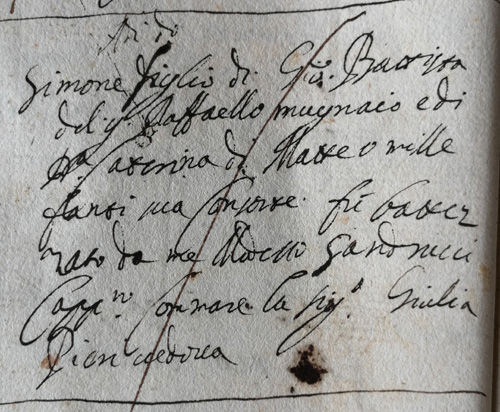 Adi do
Simone figlio di Gio: Battista
del q. Raffaello mugnaio e di
Ma Caterina di Matteo mille
fanti sua consorte fù battez
zato da me Sandrucci
Capp.no Commare la sig.a Giulia
vedova